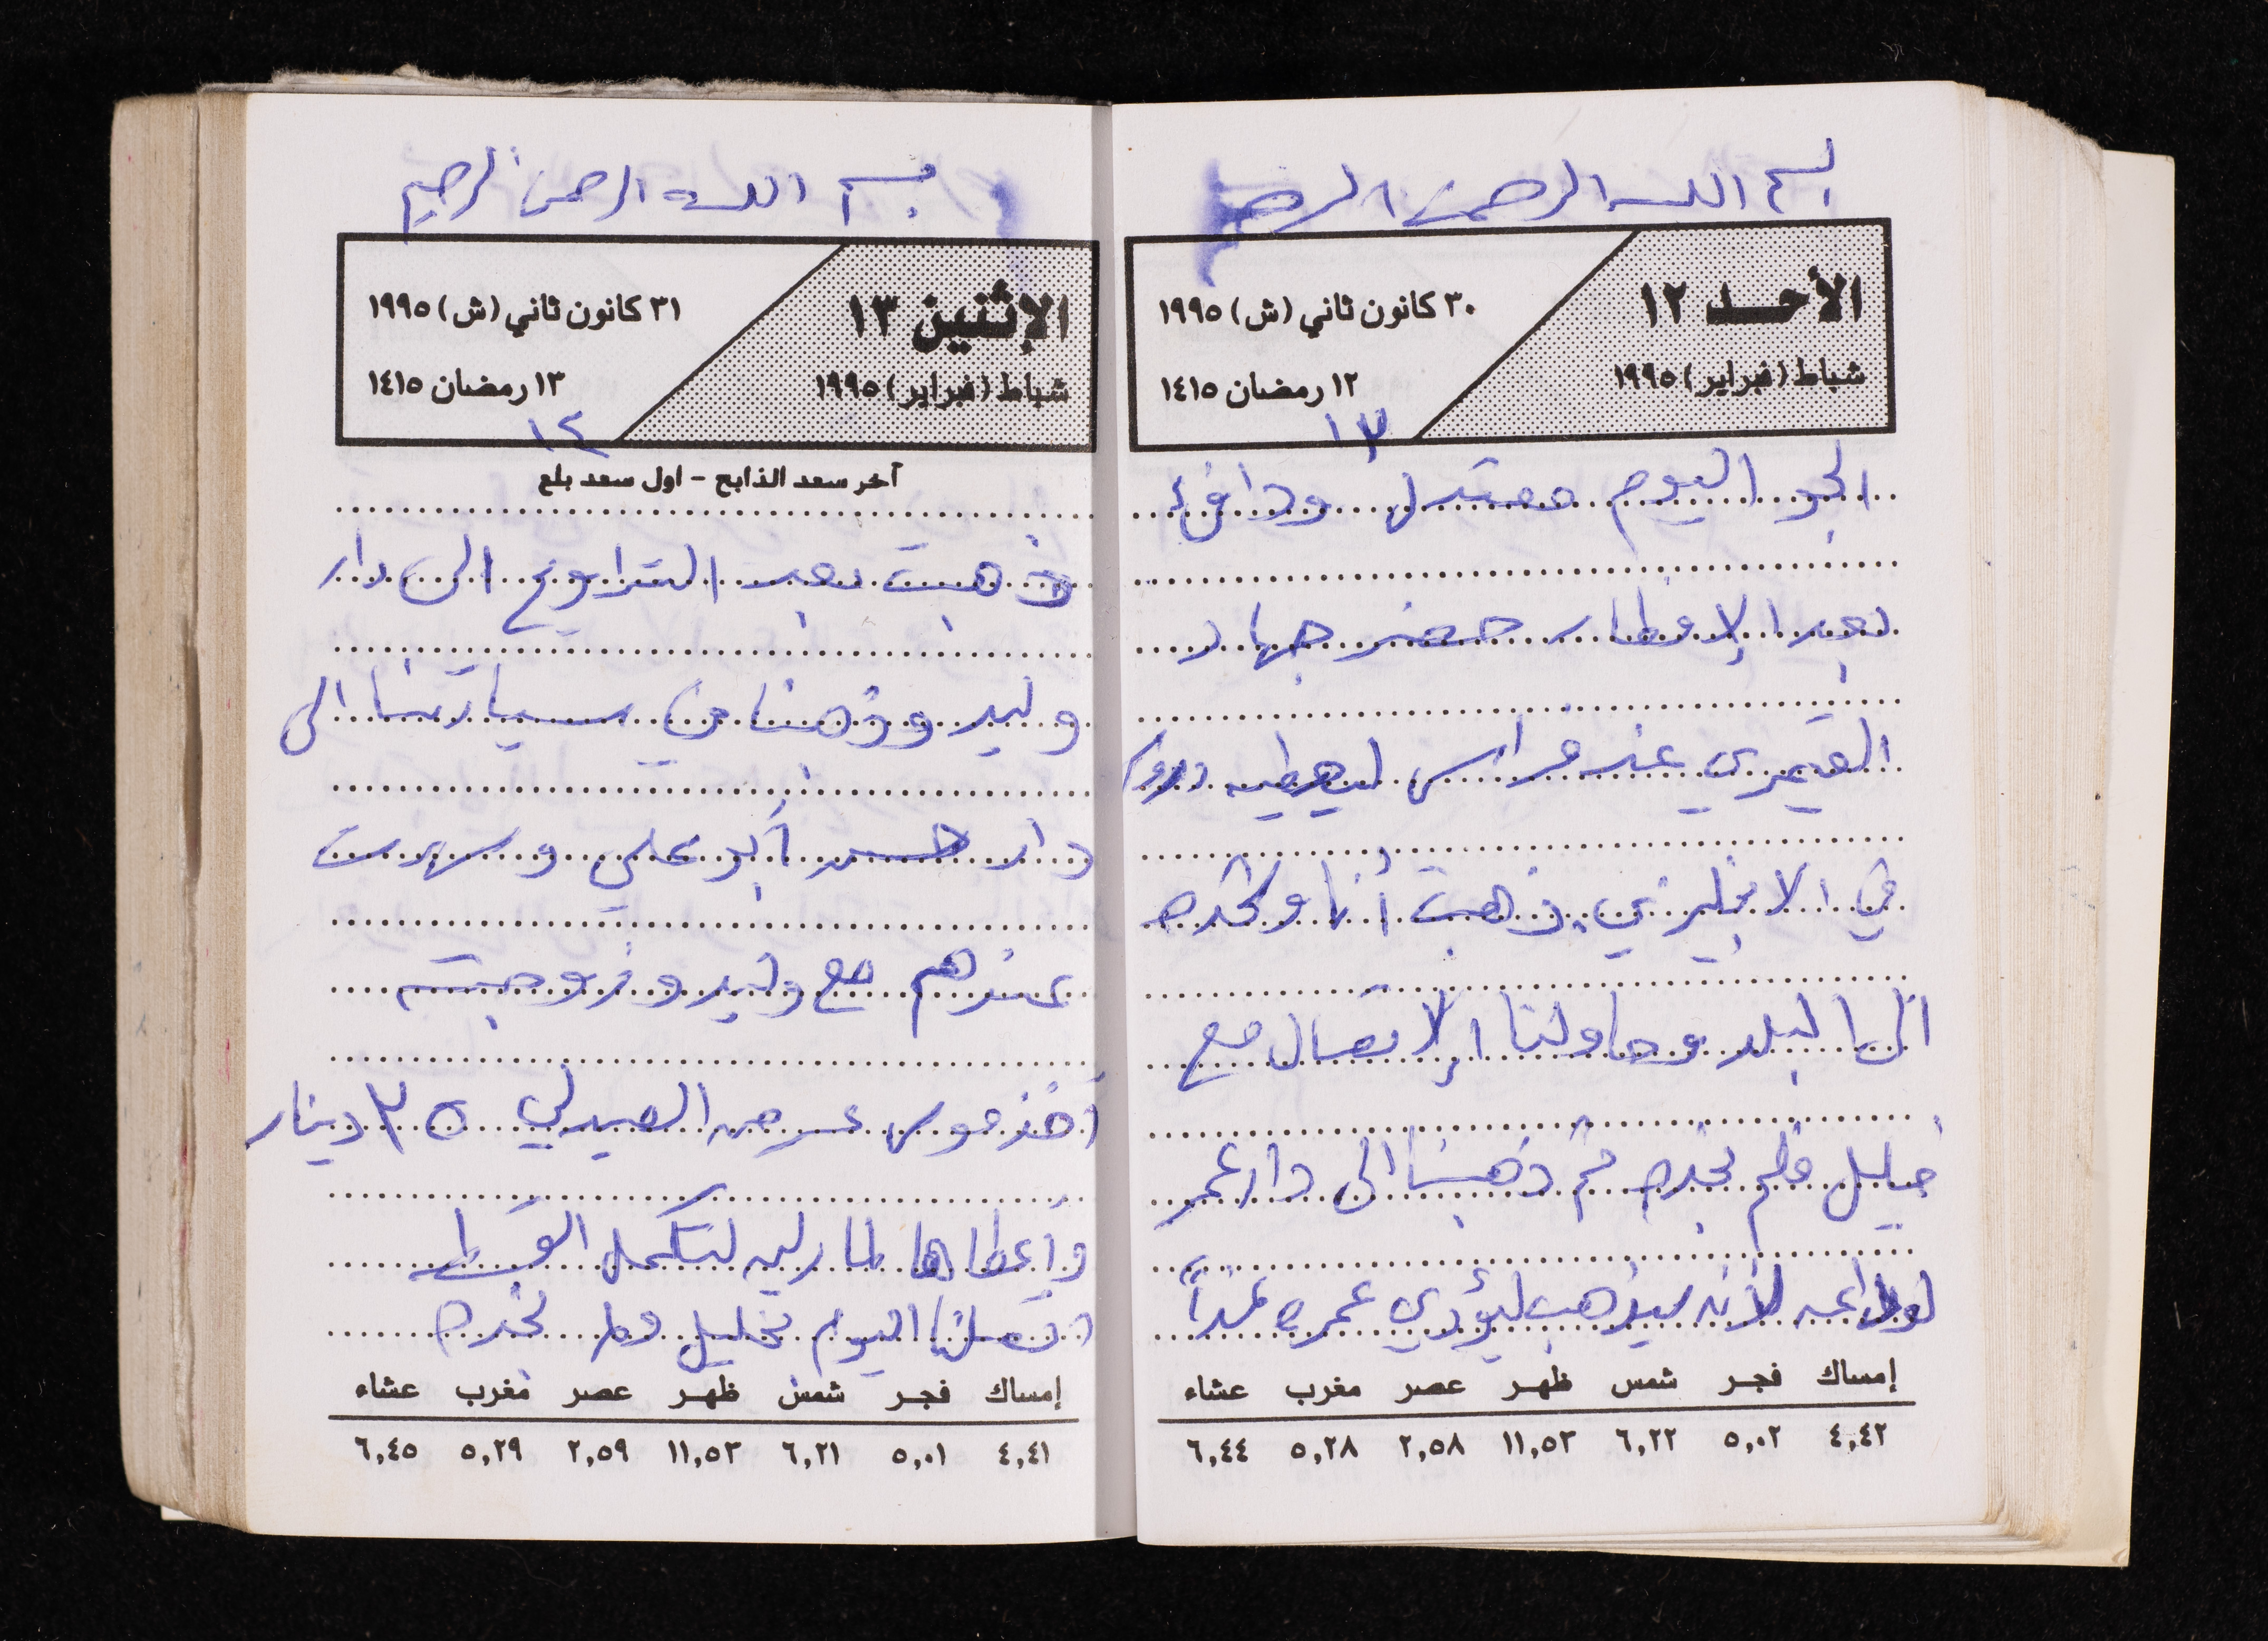 بسم الله الرحمن الرحيم
الأحد ١٢
شباط (فبراير) ١٩٩٥
٣٠ كانون ثاني (ش) ١٩٩٥
١٢ رمضان ١٤١٥
١٣
الجو اليوم معتدل ودافئ
بعد الإفطار حضر جهاد
القيمري عند فراس ليعطيه دروس
في الانجليزي ذهبت أنا و
الى البلد وحاولنا الإتصال مع
خليل فلم نجده ثم ذهبنا الى دار عمر
لوداعه لأنه سيذهب ليؤدي عمره غداً
إمساك فجر شمس ظهر عصر مغرب عشاء
٤,٤٢ ٥,٠٢ ٦,٢٢ ١١,٥٢ ٢,٥٨ ٥,٢٨ ٦,٤٤
بسم الله الرحمن الرحيم
الإثنين ١٣
شباط (فبراير) ١٩٩٥
٣١ كانون ثاني (ش) ١٩٩٥
١٣ رمضان ١٤١٥
١٤
آخر سعد الذابح - اول سعد بلع
ذهبت بعد التراويح الى دار
وليد وذهبنا في سيارتنا الى
دار حسن أبو علي وسهرت
عندهم مع وليد وزوجته
أخذ من الصيدلي دينار
وأعطاها لمارلين لتكمل القسط
اتصلنا اليوم بخليل ولم نجده
إمساك فجر شمس ظهر عصر مغرب عشاء
٤,٤١ ٥,٠١ ٦,٢١ ١١,٥٢ ٢,٥٩ ٥,٢٩ ٦,٤٥